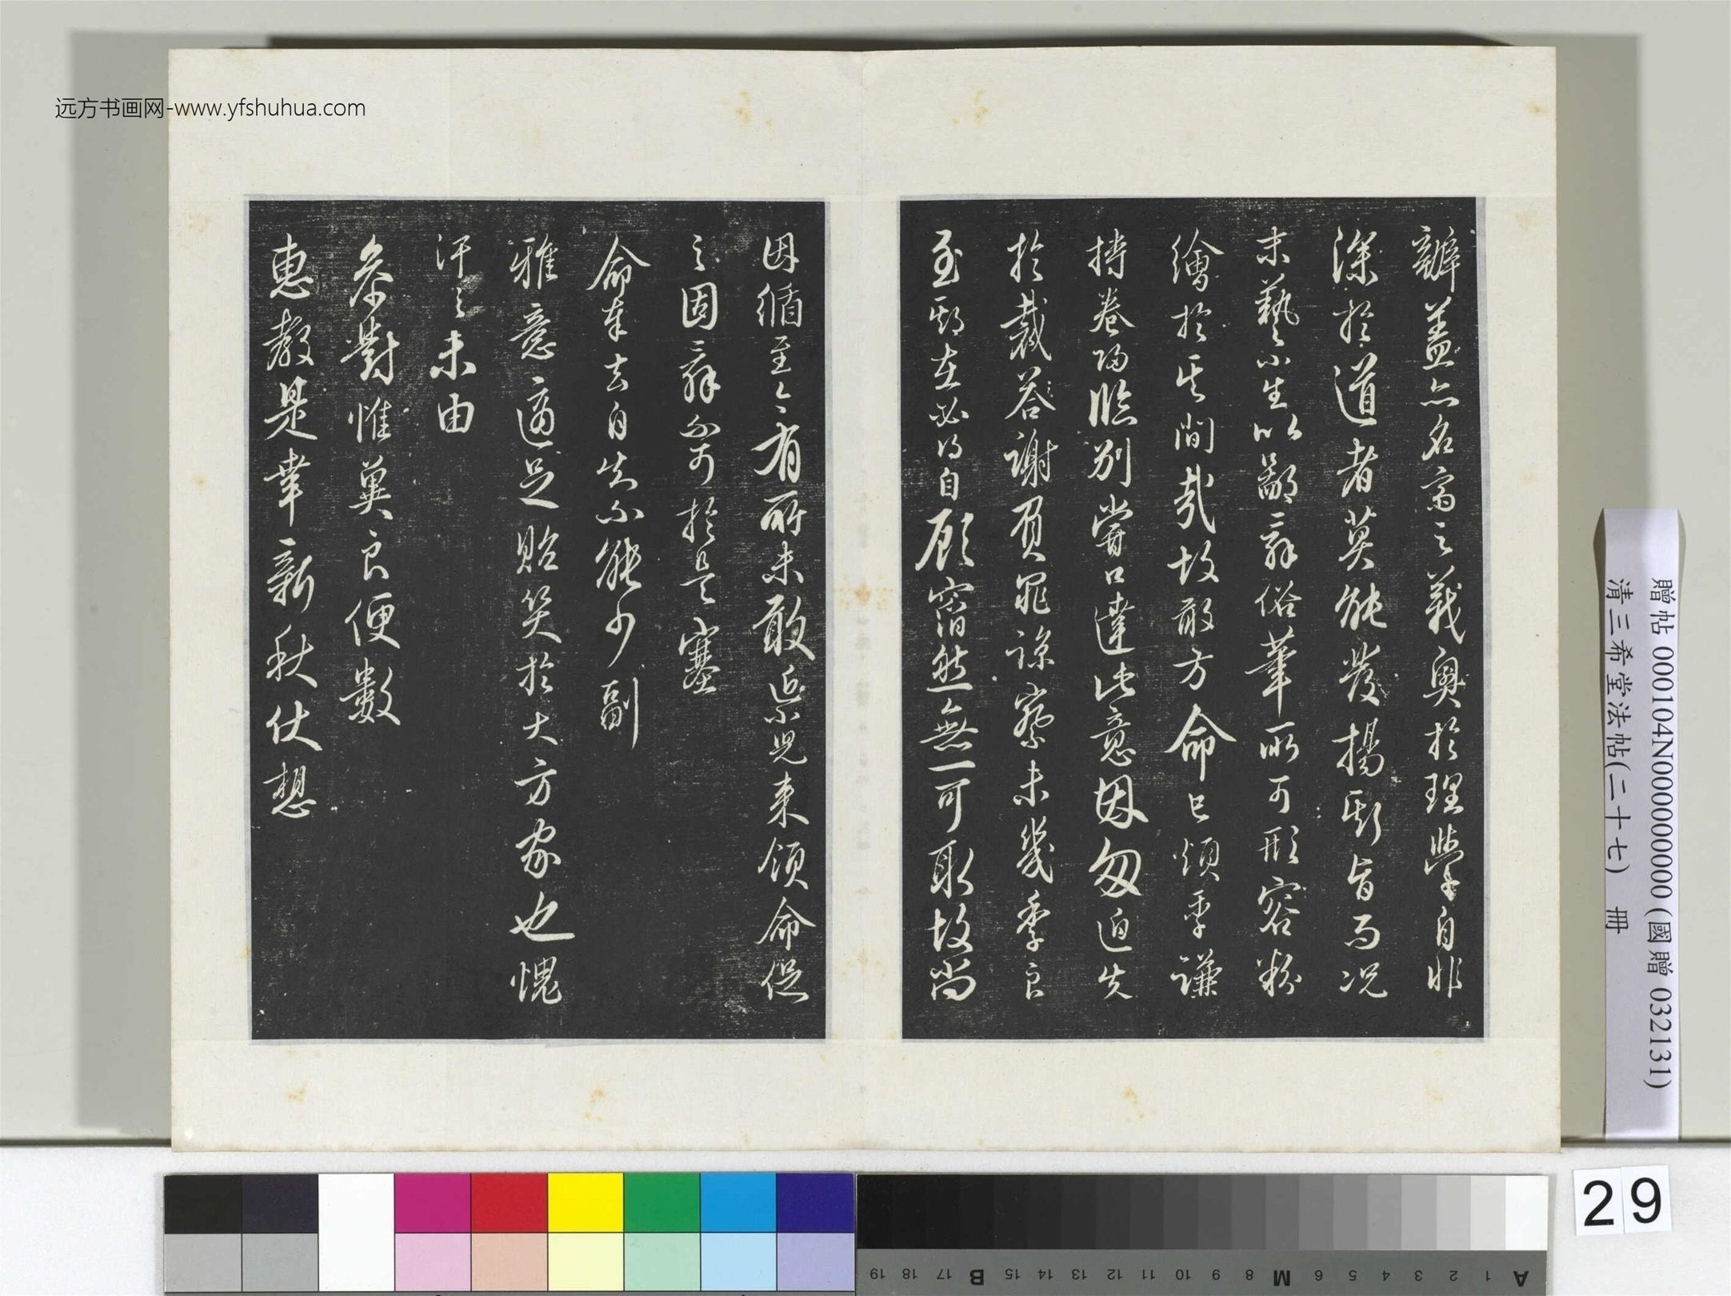 远方书画网-www.yfshuhua.com
辭蓋亦名高之義奧於理學自非
深於道者莫能發揚厥旨而况
末藝小生以鄙辭俗筆所可形容粉
繪於其間哉故敢方命已煩再謙
持卷歸臨別嘗口達此意因匆迫失
於裁答謝負罪諒察未幾季良
至取在必得自顧窅然無一可取故尚
因循至今有所未敢近小兒來領命促
之固辭不可於是塞
命奉去自知不能少副
雅意適足貽笑於大方家也愧
汗之未由
參對惟冀良便數
惠教是幸新秋伏想
贈帖 000104N000000000 (國贈 032131)
清三希堂法帖(二十七) 冊
29
A 1 2 3 4 5 6 M 8 9 10 11 12 13 14 15 B 17 18 19